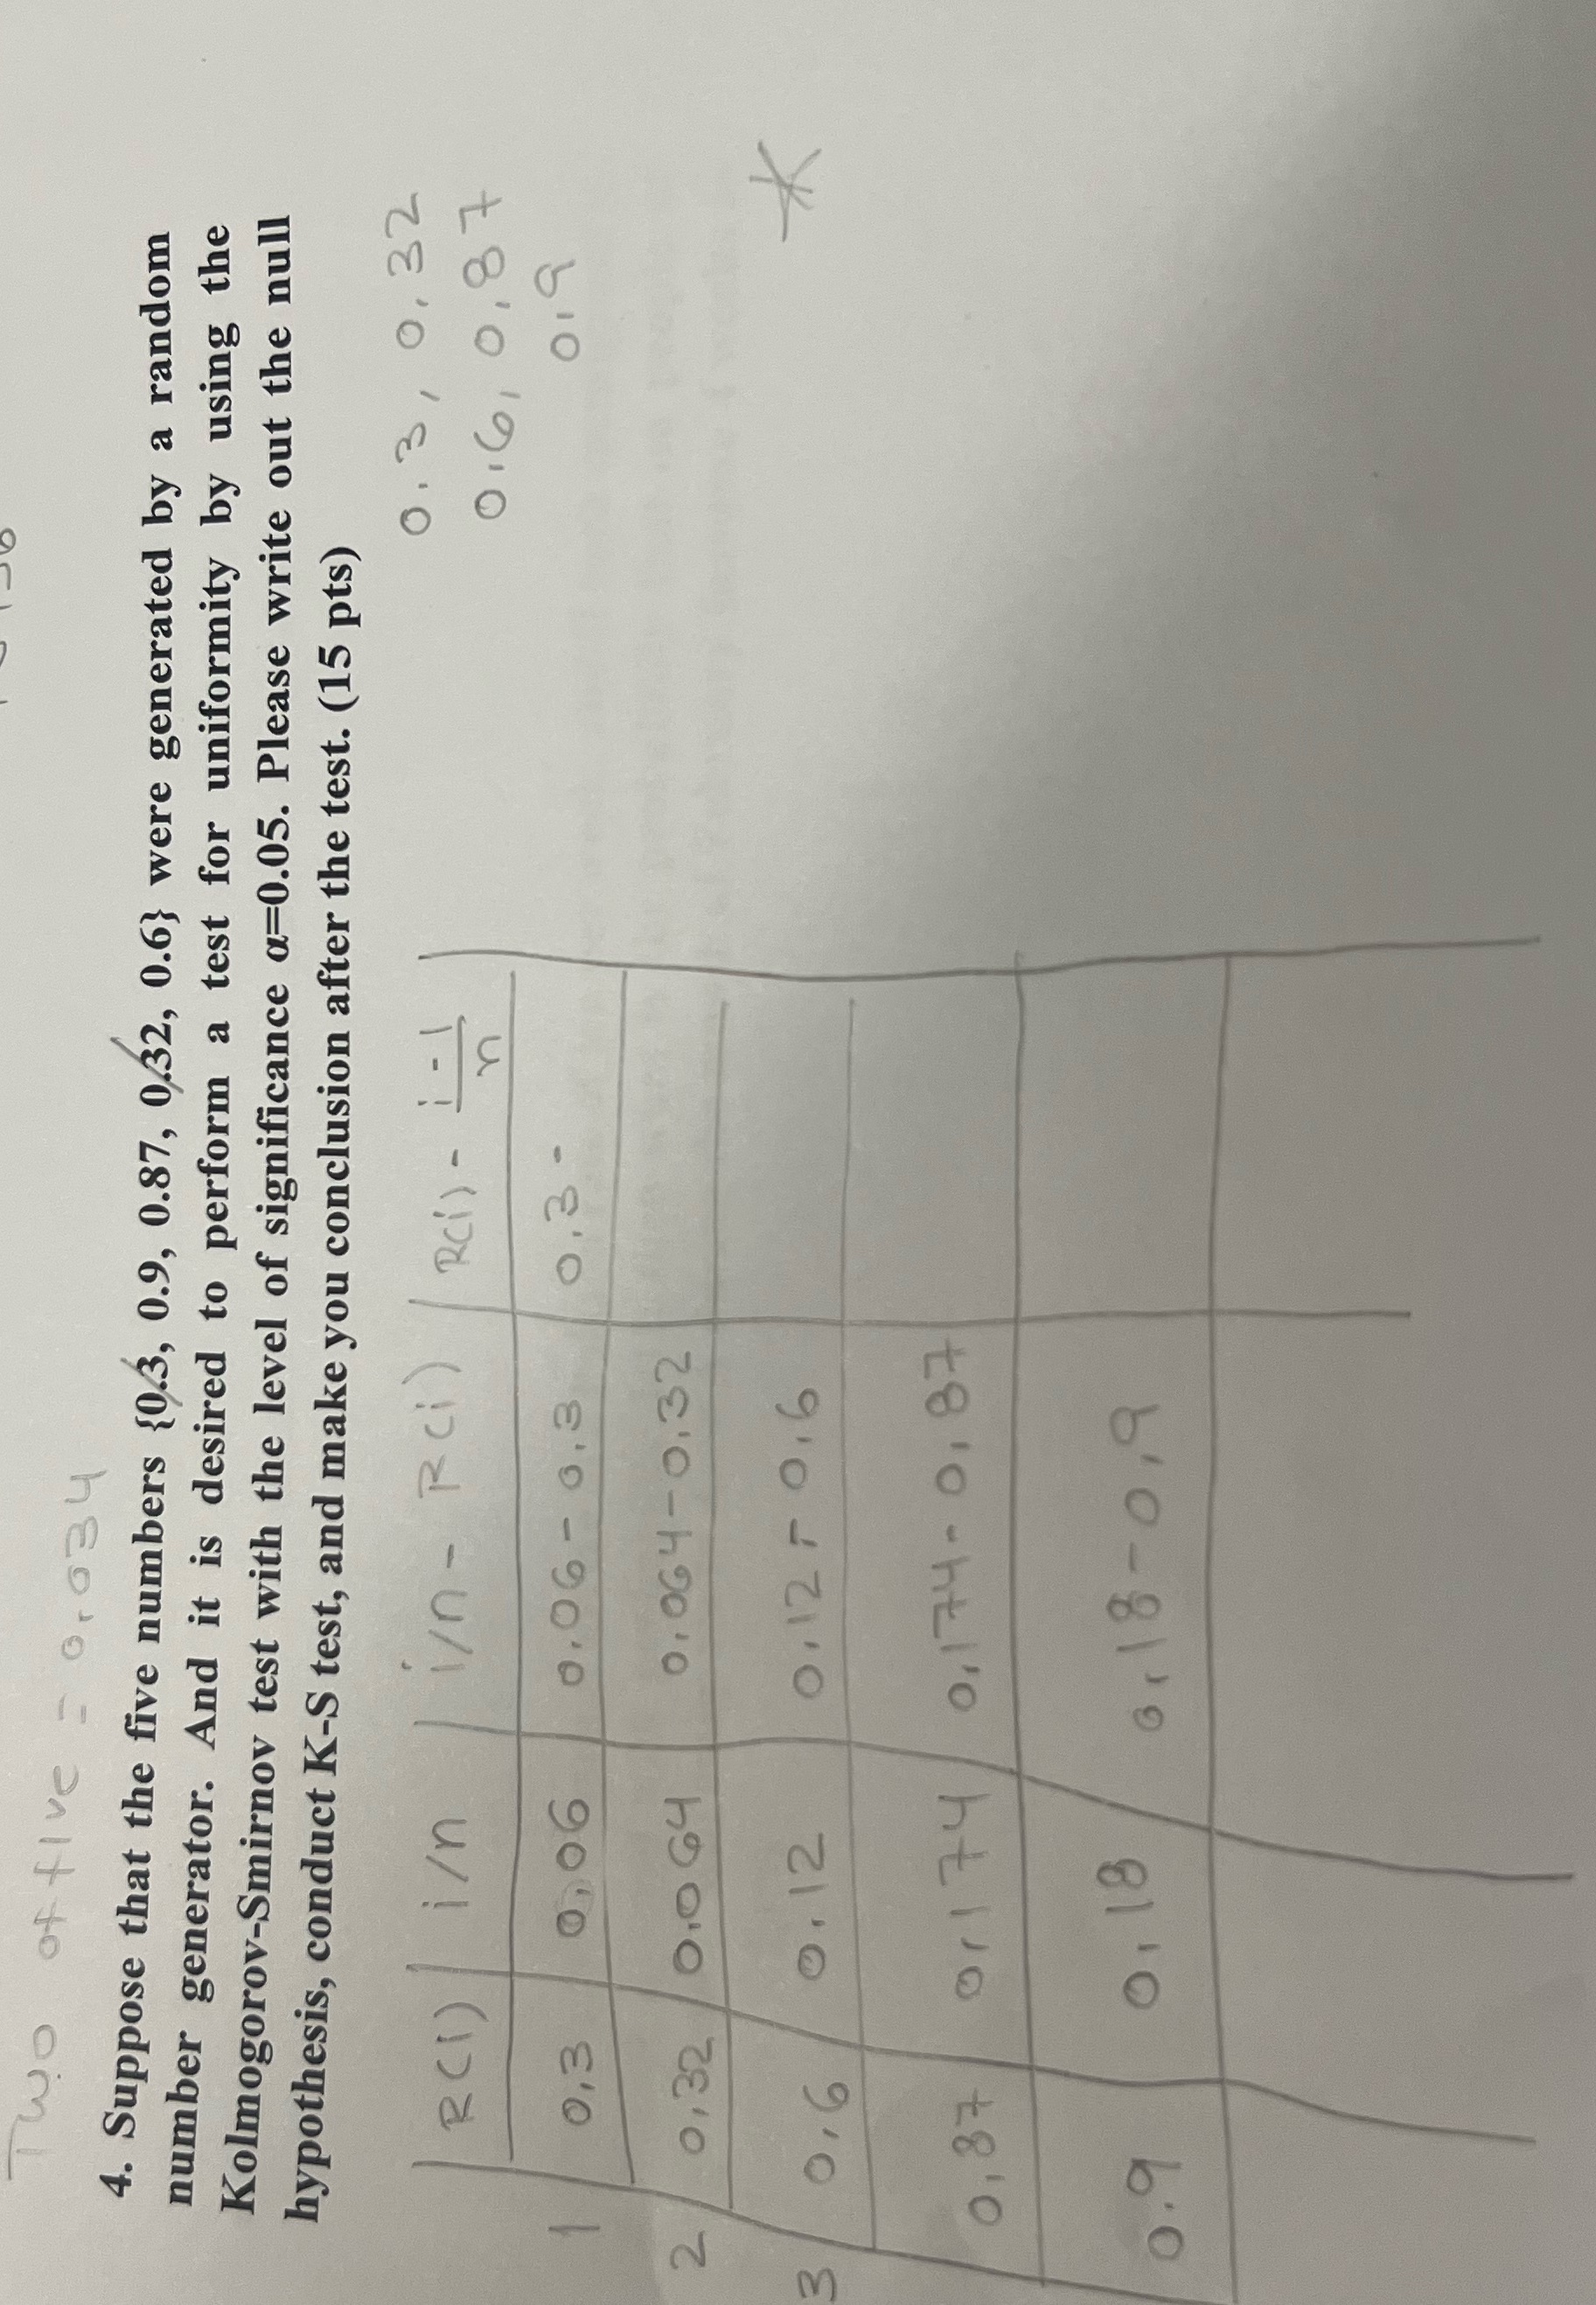 Two of five = 0.034
4. Suppose that the five numbers {0.3, 0.9, 0.87, 0.32, 0.6} were generated by a random
number generator. And it is desired to perform a test for uniformity by using the
Kolmogorov-Smirnov test with the level of significance α=0.05. Please write out the null
hypothesis, conduct K-S test, and make you conclusion after the test. (15 pts)
0.3, 0.32
0.6, 0.87
0.9
R(i) i/n i/n - R(i) R(i) - i-1/n
1 0.3 0.06 0.06 - 0.3 0.3 -
2 0.32 0.064 0.064 - 0.32
3 0.6 0.12 0.12 - 0.6
0.87 0.174 0.174 - 0.87
0.9 0.18 0.18 - 0.9